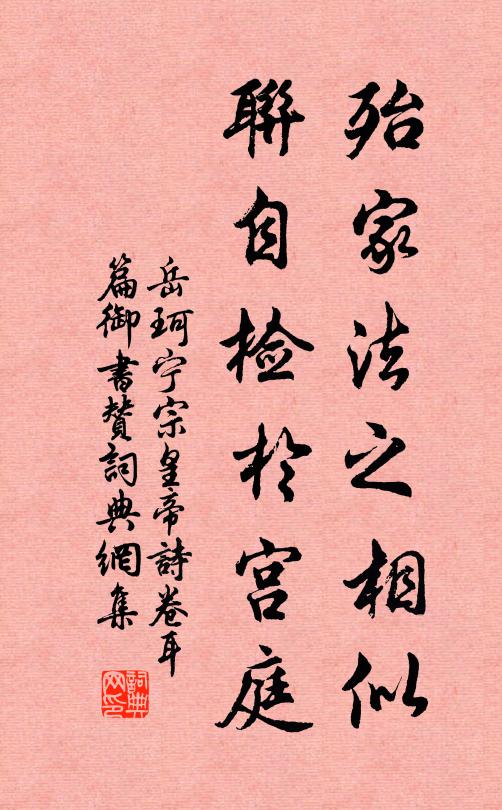 殆家法之相似
聯自检於宫庭
岳珂宁宗皇帝詩卷耳
篇御書赞詞典網集
詞典网印